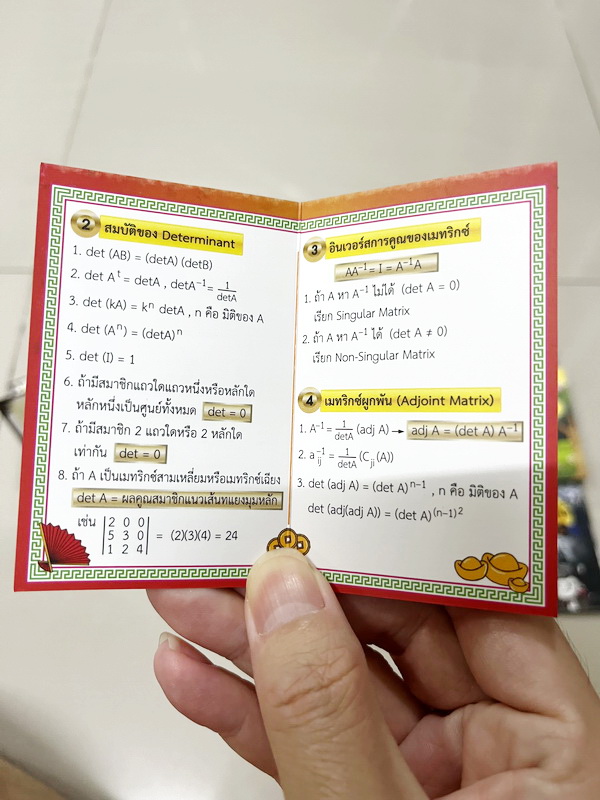 2 สมบัติของ Determinant
1. det (AB) = (detA) (detB)
2. det Aᵗ = detA , detA⁻¹ = 1/detA
3. det (kA) = kⁿ detA , n คือ มิติของ A
4. det (Aⁿ) = (detA)ⁿ
5. det (I) = 1
6. ถ้ามีสมาชิกแถวใดแถวหนึ่งหรือหลักใด
หลักหนึ่งเป็นศูนย์ทั้งหมด det = 0
7. ถ้ามีสมาชิก 2 แถวใดหรือ 2 หลักใด
เท่ากัน det = 0
8. ถ้า A เป็นเมทริกซ์สามเหลี่ยมหรือเมทริกซ์เฉียง
det A = ผลคูณสมาชิกแนวเส้นทแยงมุมหลัก
เช่น
2 0 0
5 3 0 = (2)(3)(4) = 24
1 2 4
3 อินเวอร์สการคูณของเมทริกซ์
AA⁻¹ = I = A⁻¹A
1. ถ้า A หา A⁻¹ ไม่ได้ (det A = 0)
เรียก Singular Matrix
2. ถ้า A หา A⁻¹ ได้ (det A ≠ 0)
เรียก Non-Singular Matrix
4 เมทริกซ์ผูกพัน (Adjoint Matrix)
1. A⁻¹ = 1/detA (adj A) → adj A = (det A) A⁻¹
2. aᵢⱼ⁻¹ = 1/detA (Cⱼᵢ(A))
3. det (adj A) = (det A)ⁿ⁻¹ , n คือ มิติของ A
det (adj(adj A)) = (det A)^(n-1)²